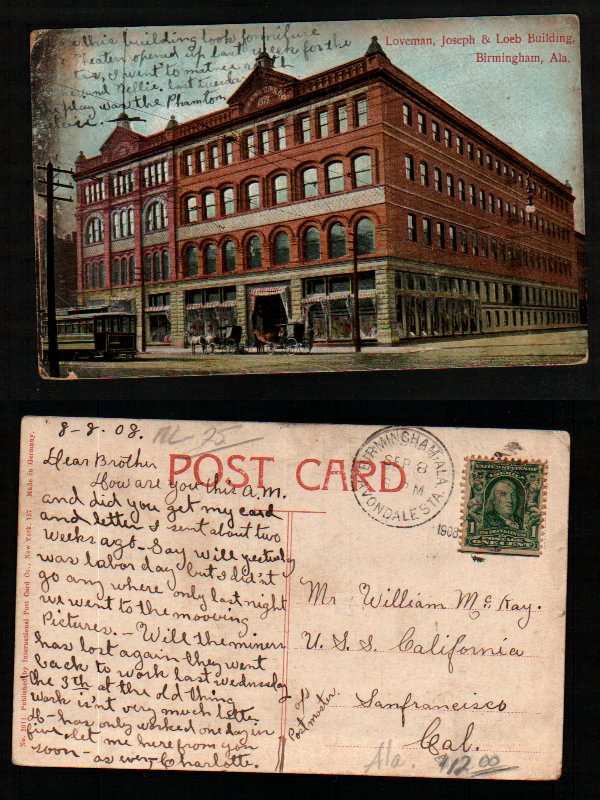 Loveman, Joseph & Loeb Building,
Birmingham, Ala.
this building look familure
Theater opened up last week for the
I went to matnee
and Nellie. last tuesday
play was the Phamtom
8-8.08.
NL 25
Dear Brother
How are you this A.M.
and did you get my card
and letter I sent about two
weeks ago - Say Will yesterday
was labor day but I did'nt
go any where only last night
we went to the mooving
Pictures. - Will the miners
has lost again they went
back to work last wednesday
the 3th at the old thing
work is'nt very much
has only worked one day in
five. let me here from you
soon - as ever Charlotte.
POST CARD
BIRMINGHAM, ALA.
SEP 8
PM
AVONDALE STA.
1908
1
Mr William McKay.
U.S.S. California
Sanfrancisco
Cal.
Postmaster.
Ala.
$12.00
No. 2011 Published by International Post Card Co., New York. 157 Made in Germany.